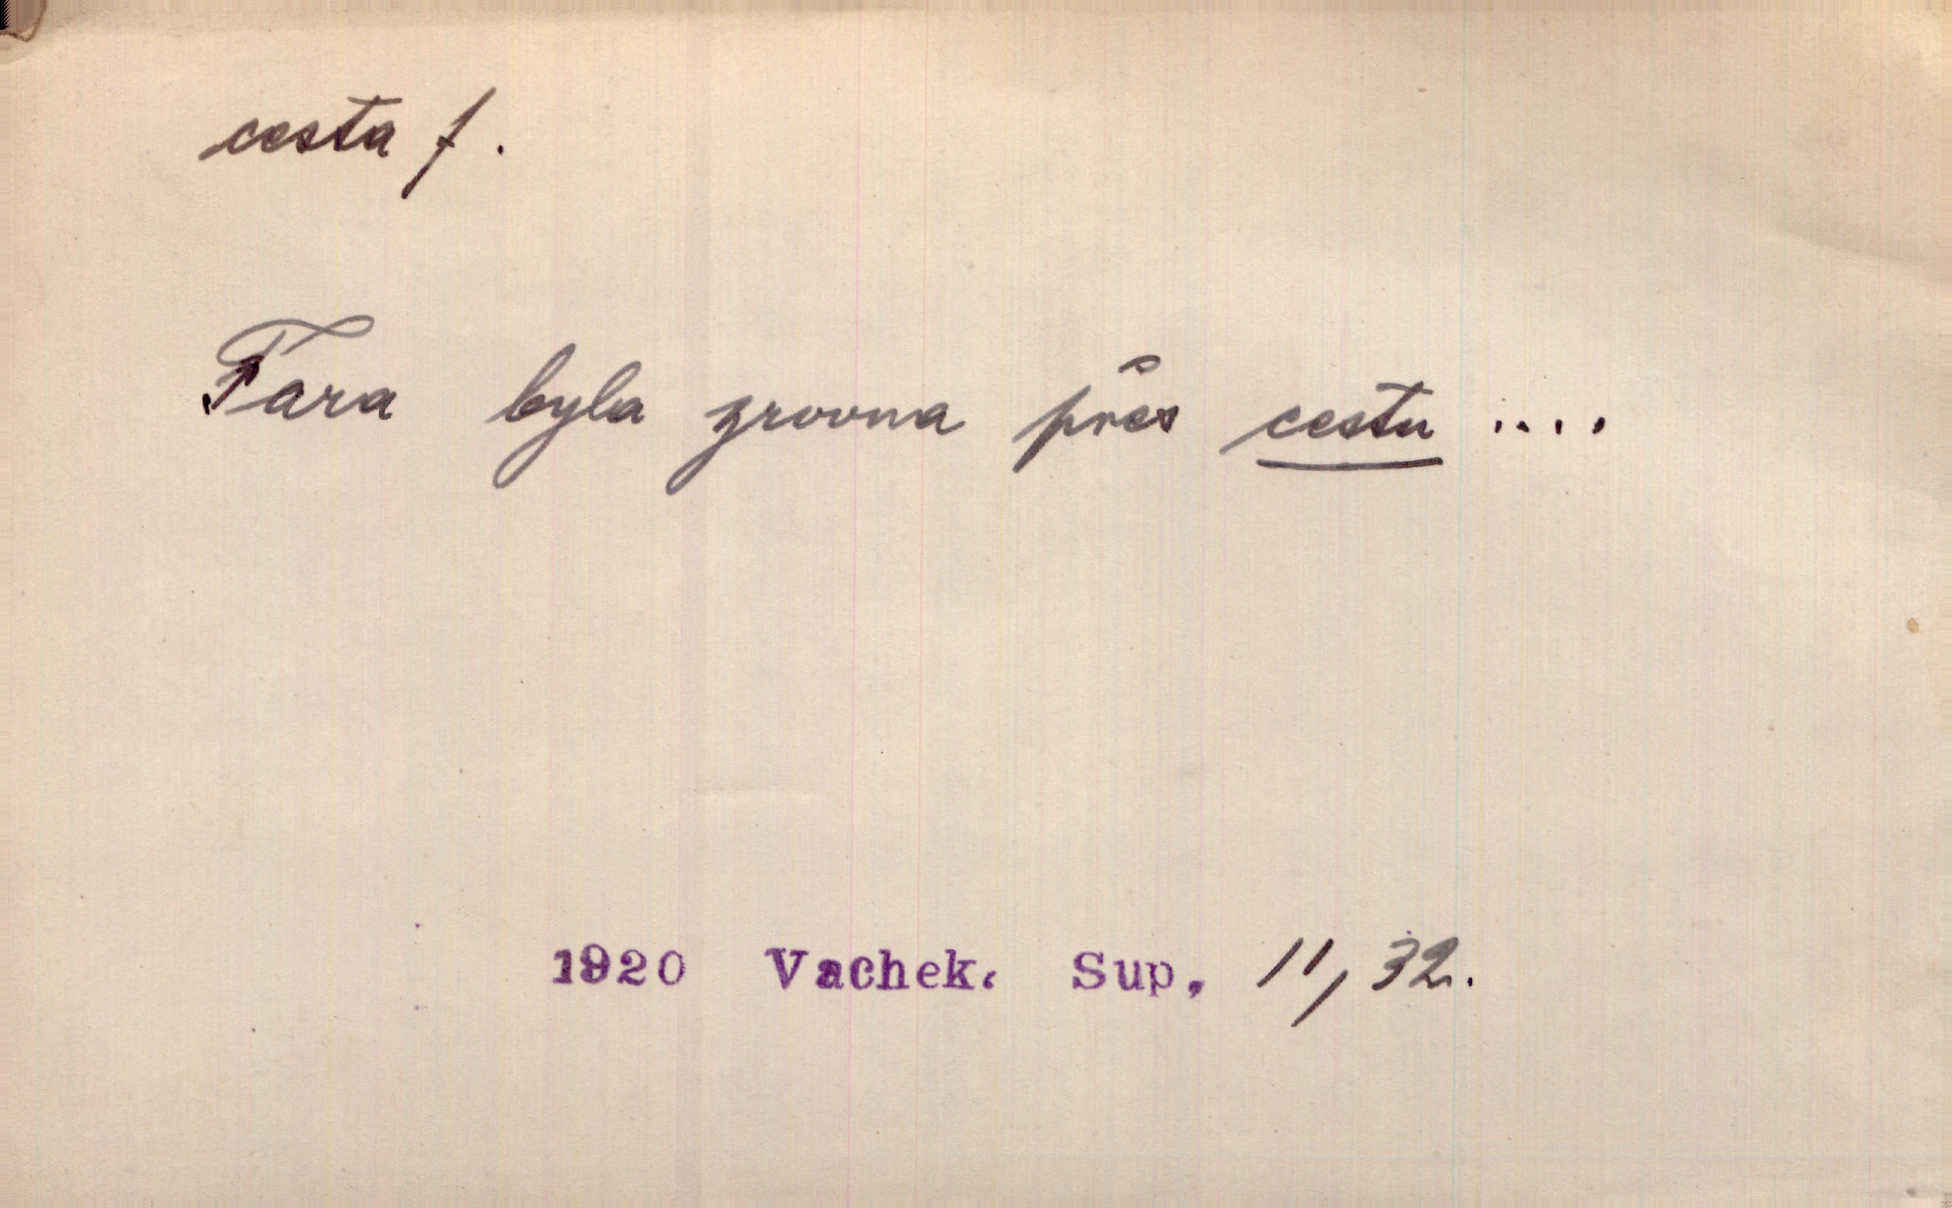 cesta f.
Fara byla zrovna přes cestu ....
1920 Vachek. Sup. 11, 32.